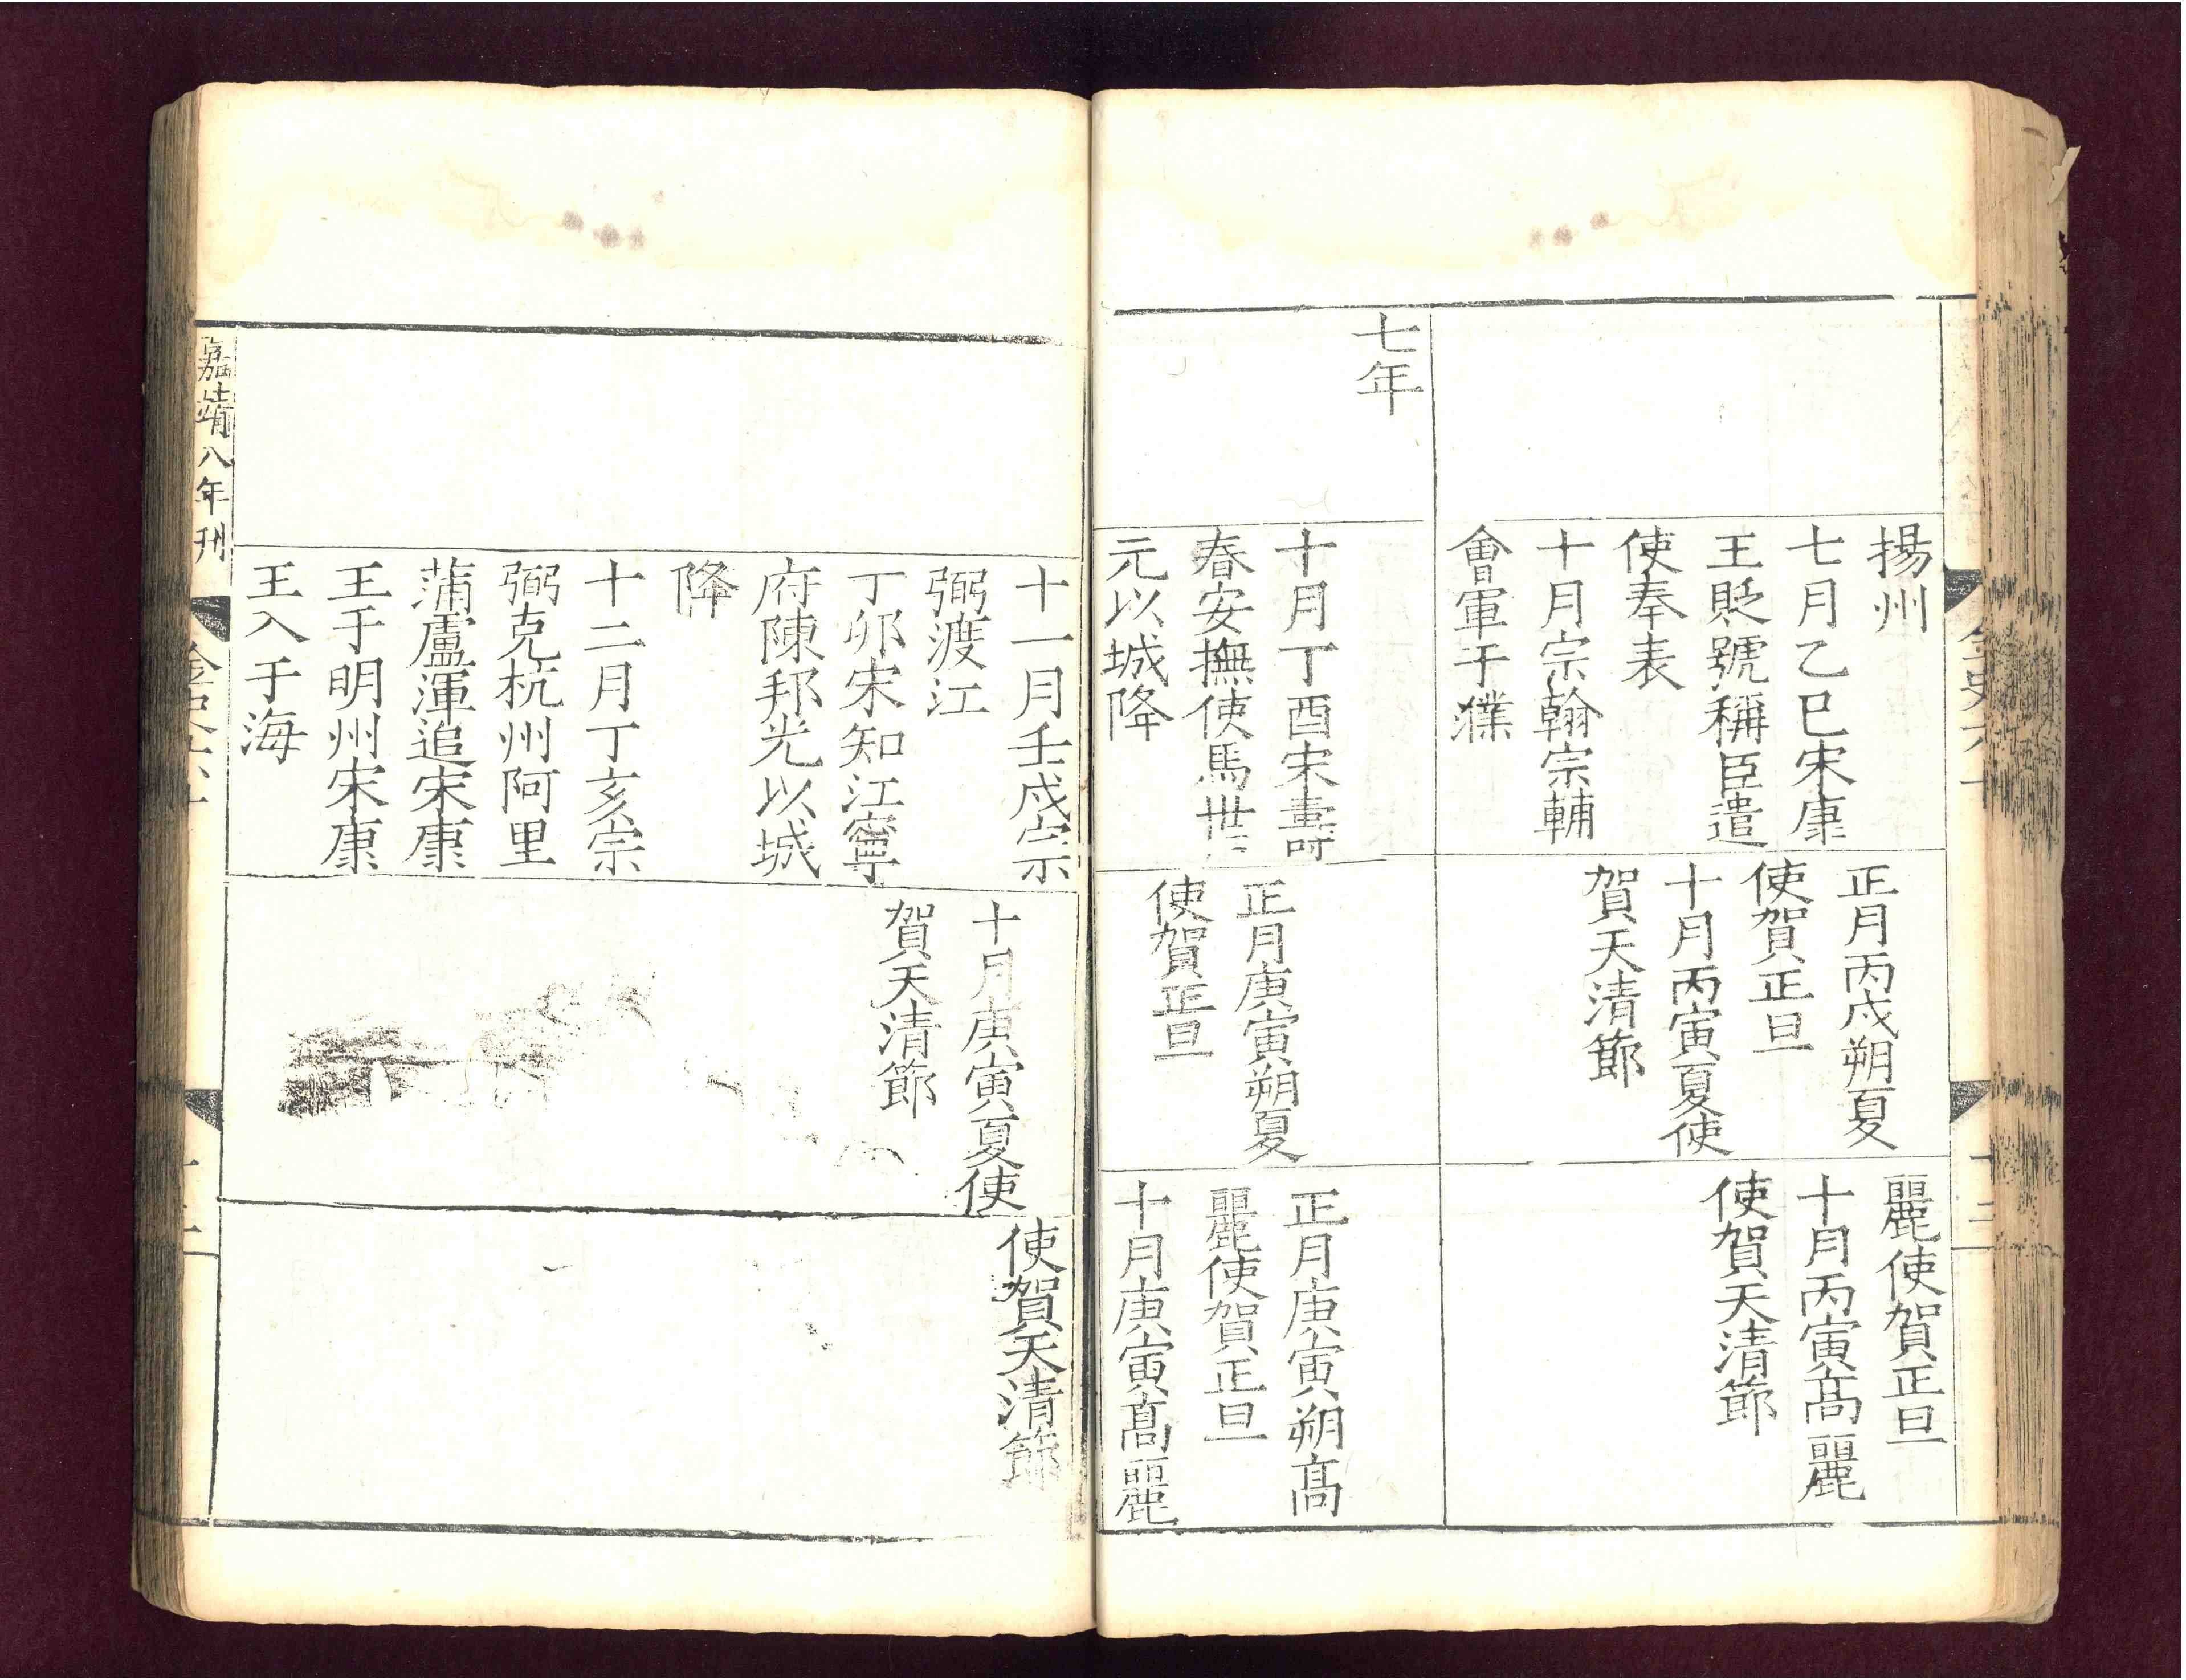 揚州
七月乙巳宋康
王貶號稱臣遣
使奉表
十月宗翰宗輔
會軍于濮
正月丙戌朔夏
使賀正旦
十月丙寅夏使
賀天清節
麗使賀正旦
十月丙寅高麗
使賀天清節
七年
十月丁酉宋壽
春安撫使馬世
元以城降
正月庚寅朔夏
使賀正旦
正月庚寅朔高
麗使賀正旦
十月庚寅高麗
十一月壬戌宗
弼渡江
丁卯宋知江寧
府陳邦光以城
降
十二月丁亥宗
弼克杭州阿里
蒲盧渾追宋康
王于明州宋康
王入于海
十月庚寅夏使
賀天清節
使賀天清節
嘉靖八年刊